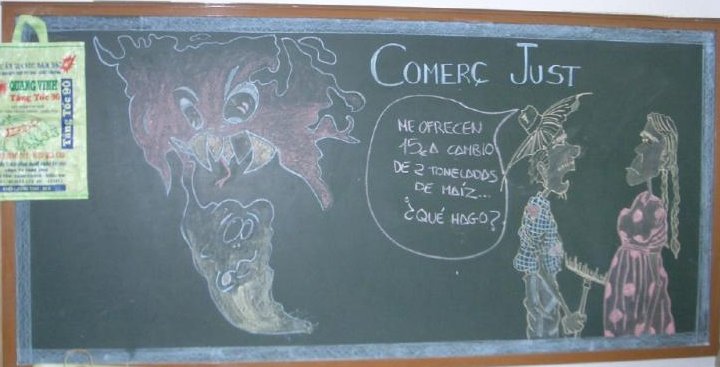 COMERÇ JUST
ME OFRECEN
15€ A CAMBIO
DE 2 TONELADAS
DE MAÍZ...
¿QUÉ HAGO?
QUANG VINH
Tăng Tốc 90
Tăng Tốc 90